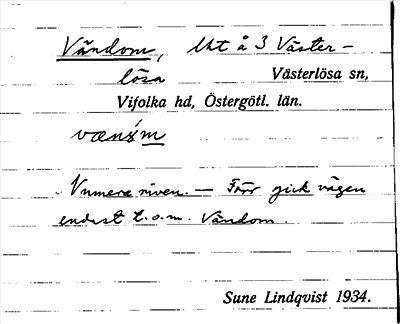 Vändom, lht å 3 Väster-
lösa Västerlösa sn,
Vifolka hd, Östergötl. län.
Numera riven. — Förr gick vägen
endast t.o.m. Vändom.
Sune Lindqvist 1934.